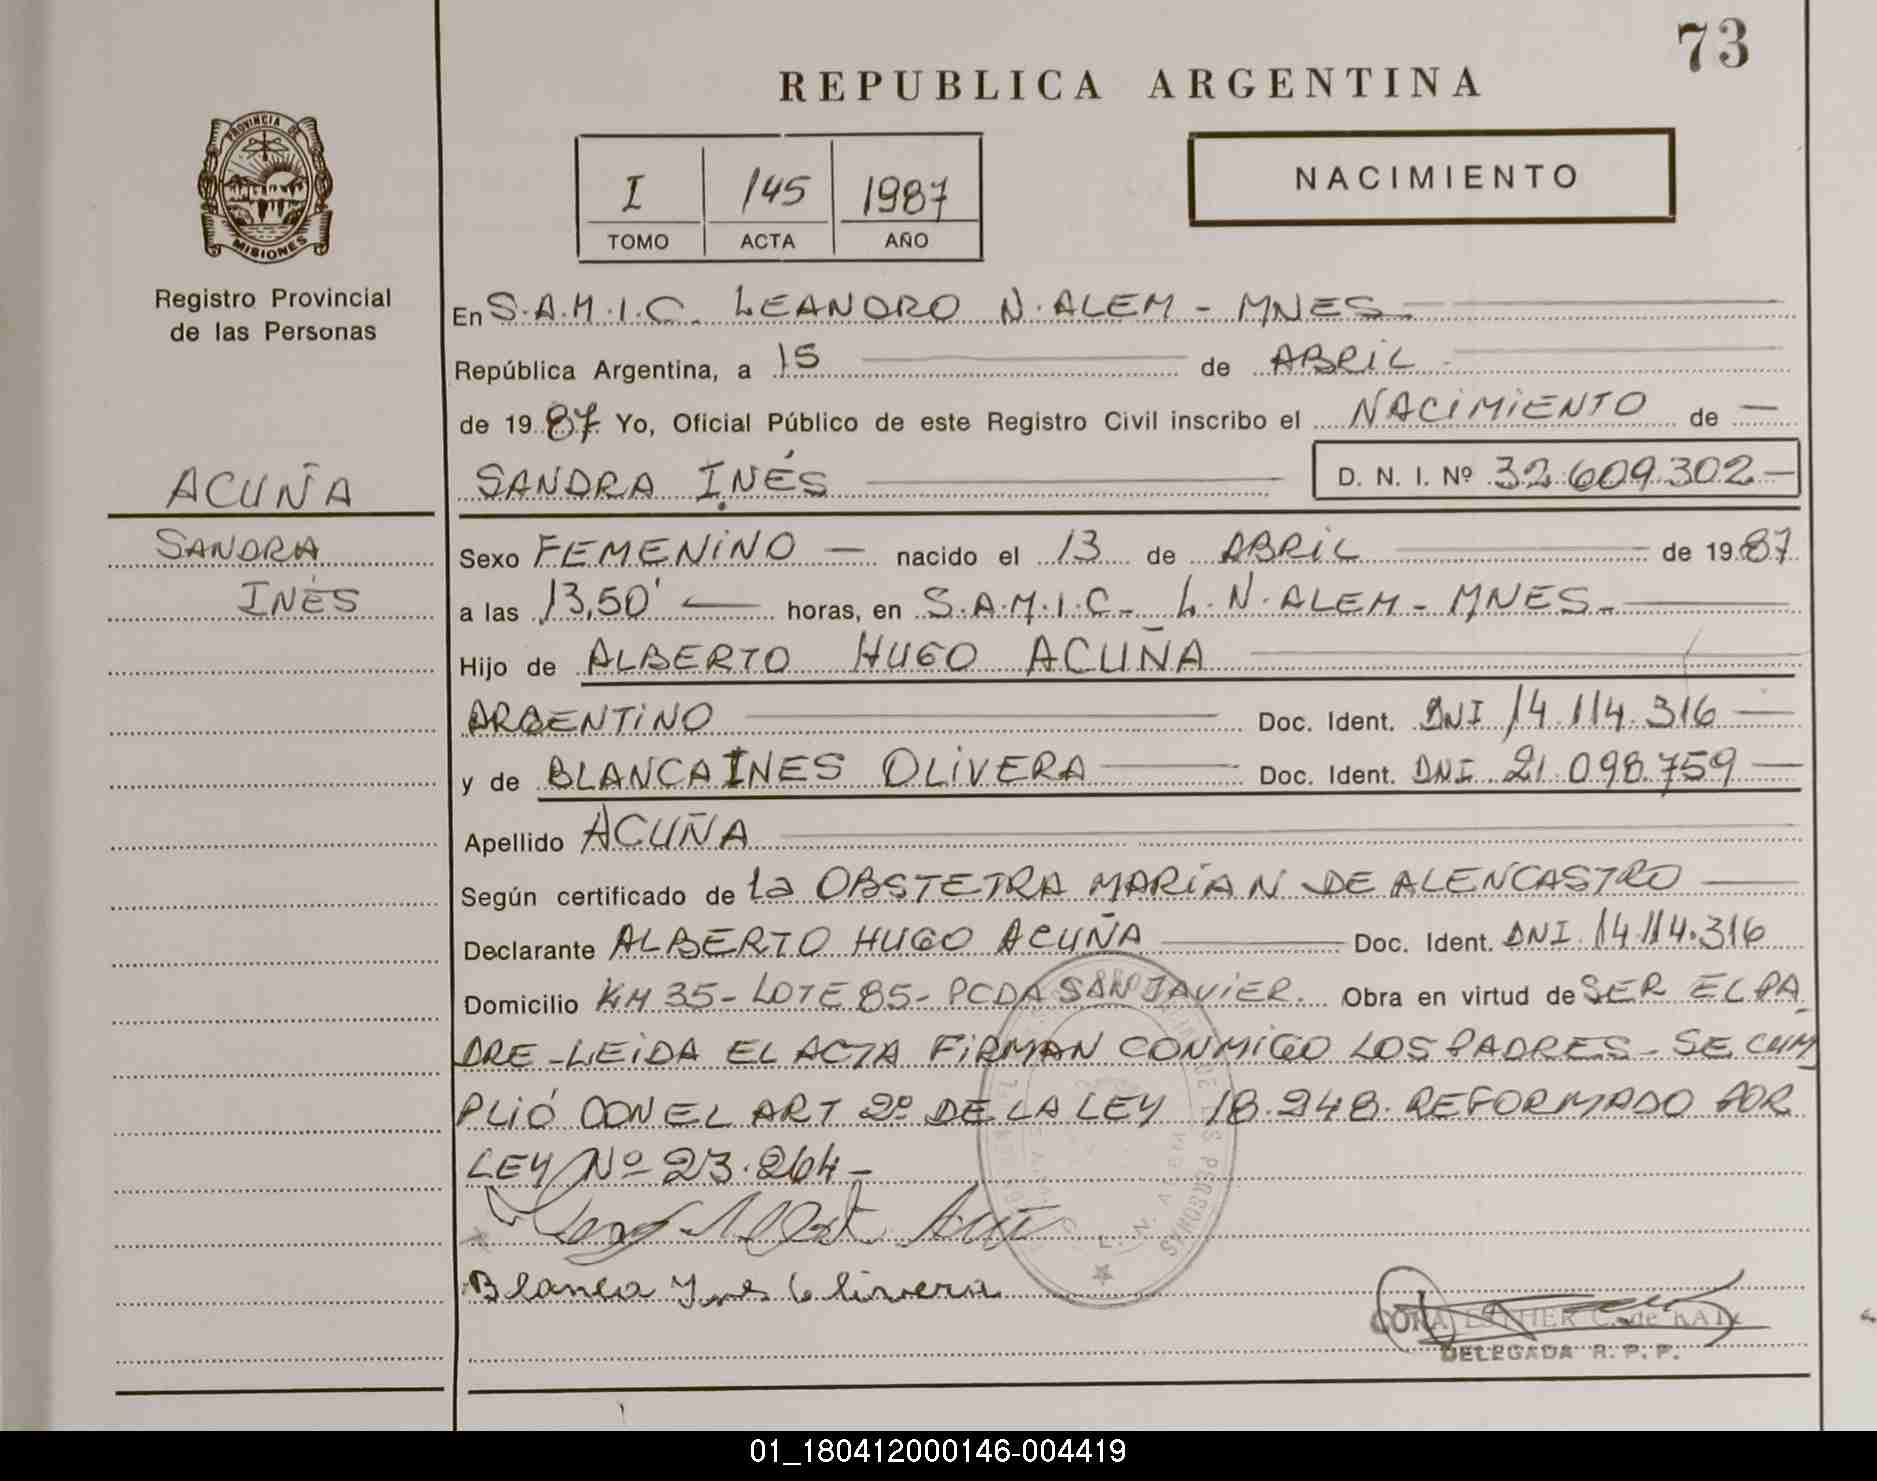 73
REPUBLICA ARGENTINA
PROVINCIA DE
MISIONES
Registro Provincial
de las Personas
I 145 1987
TOMO ACTA AÑO
NACIMIENTO
En S.A.M.I.C. LEANDRO N. ALEM - MNES.
República Argentina, a 15 de ABRIL
de 1987 Yo, Oficial Público de este Registro Civil inscribo el NACIMIENTO de
SANDRA INÉS D. N. I. Nº 32.609.302
ACUÑA
SANDRA
INÉS
Sexo FEMENINO nacido el 13 de ABRIL de 1987
a las 13,50' horas, en S.A.M.I.C. L.N.ALEM - MNES.
Hijo de ALBERTO HUGO ACUÑA
ARGENTINO Doc. Ident. DNI 14.114.316
y de BLANCA INES OLIVERA Doc. Ident. DNI 21.098.759
Apellido ACUÑA
Según certificado de la OBSTETRA MARÍA N DE ALENCASTRO
Declarante ALBERTO HUGO ACUÑA Doc. Ident. DNI 14.114.316
Domicilio KM 35 - LOTE 85 - PCDA SAN JAVIER. Obra en virtud de SER EL PA
DRE - LEIDA EL ACTA FIRMAN CONMIGO LOS PADRES - SE CUM
PLIÓ CON EL ART 2º DE LA LEY 18.248. REFORMADO POR
LEY Nº 23.264 -
Blanca Ynes Olivera
L. N.
ESTHER C. de
DELEGADA R. P. P.
01_180412000146-004419